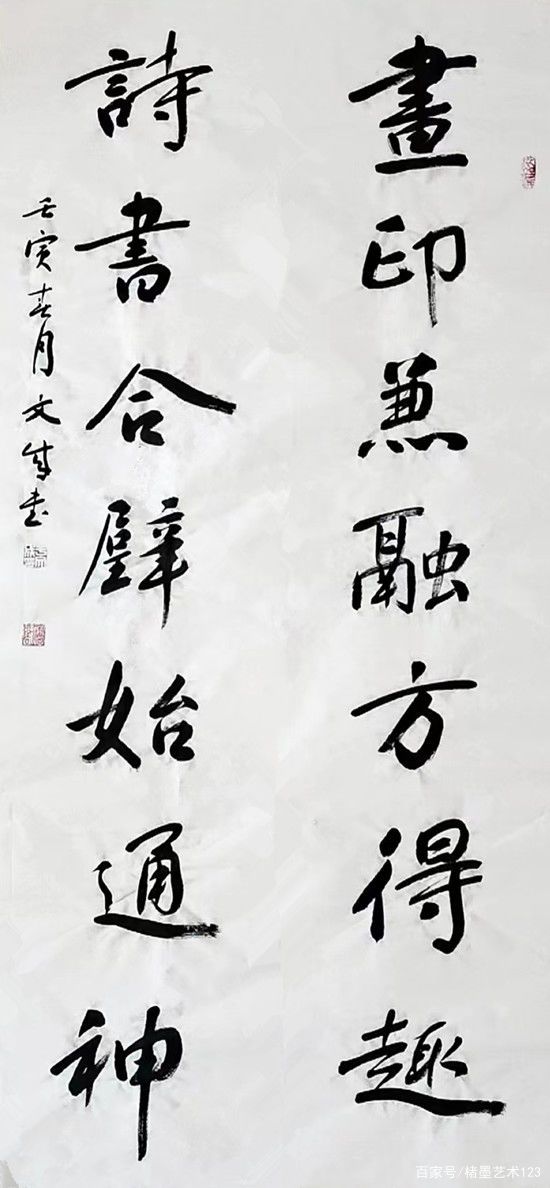 畫印兼融方得趣
詩書合璧始通神
壬寅春月文成书
百家号/楮墨艺术123